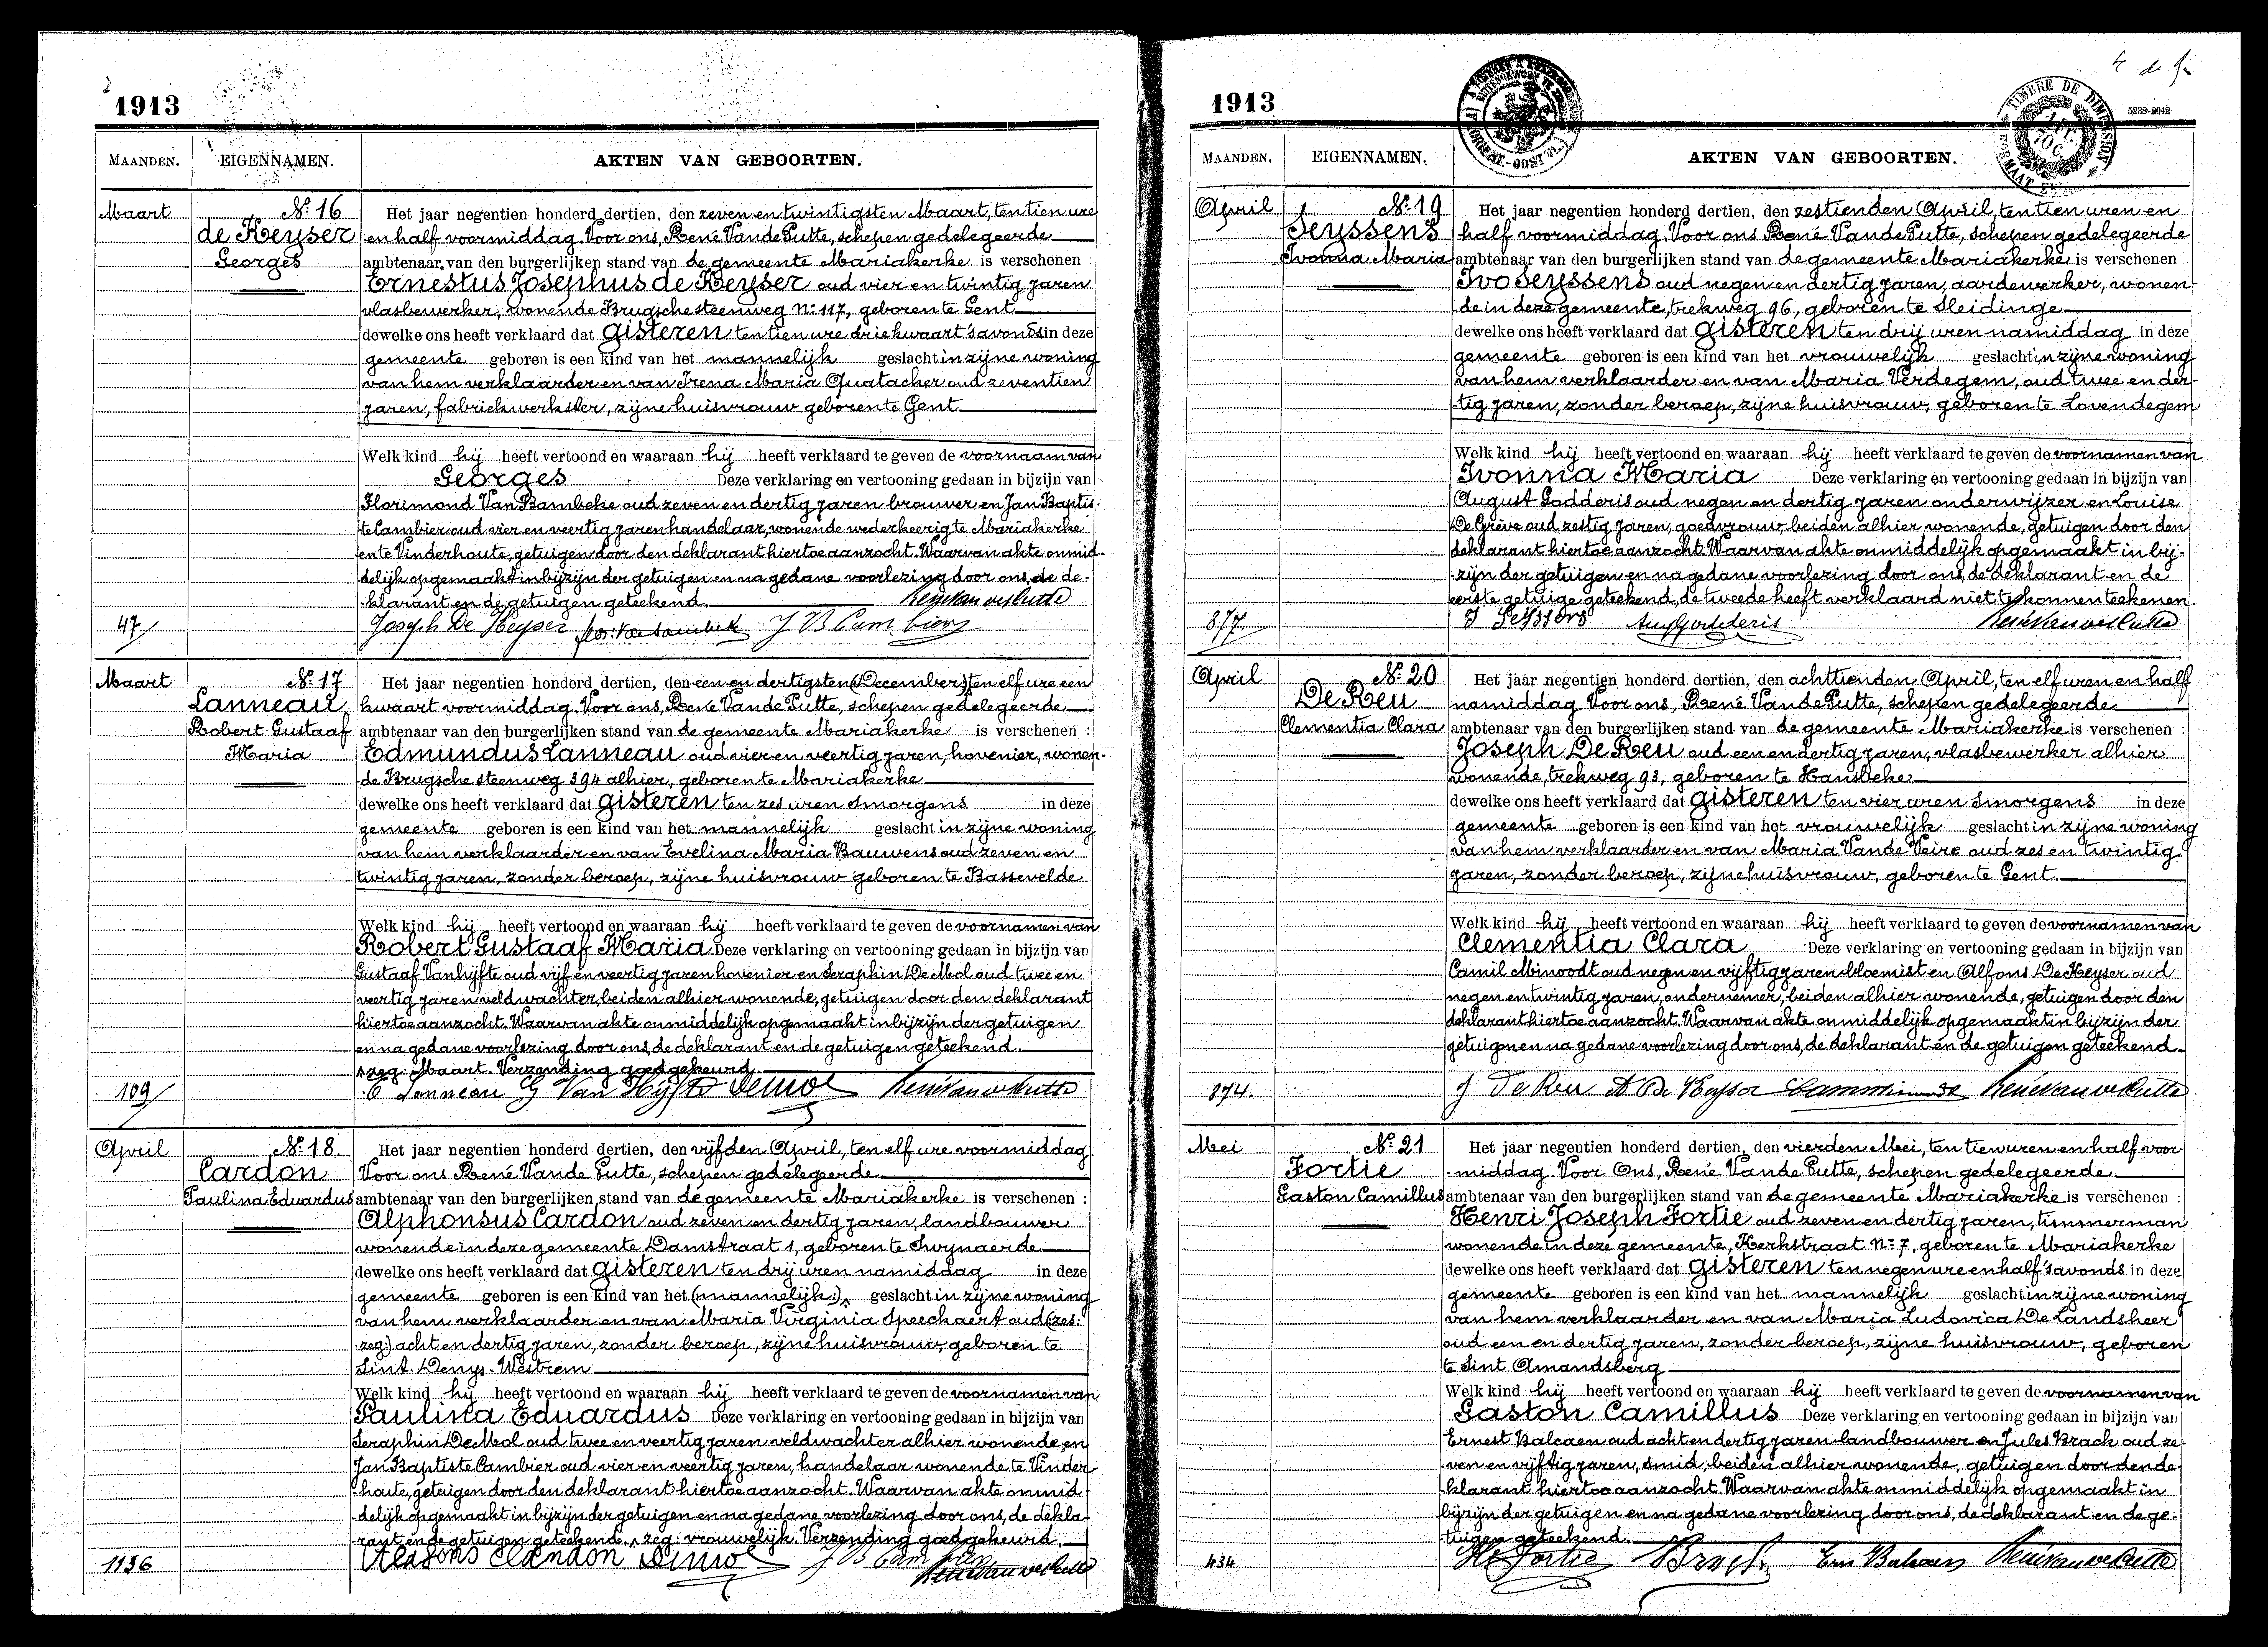 1913
MAANDEN.
EIGENNAMEN.
AKTEN VAN GEBOORTEN.
Maart
Nº 16
de Keyser
Georges
Het jaar negentien honderd dertien, den zeven en twintigsten Maart, ten tien ure
en half voormiddag. Voor ons, René Vande Putte, schepen gedelegeerde
ambtenaar, van den burgerlijken stand van de gemeente Mariakerke is verschenen :
Ernestus Josephus de Keyser oud vier en twintig jaren
vlasbewerker, wonende Brugsche steenweg Nº 117, geboren te Gent
dewelke ons heeft verklaard dat gisteren ten tien ure driekwaart 's avonds in deze
gemeente geboren is een kind van het mannelijk geslacht in zijne woning
van hem verklaarder en van Irena Maria Quatacker oud zeventien
jaren, fabriekwerkster, zijne huisvrouw geboren te Gent
Welk kind hij heeft vertoond en waaraan hij heeft verklaard te geven de voornaam van
Georges Deze verklaring en vertooning gedaan in bijzijn van
Florimond Van Bambeke oud zeven en dertig jaren brouwer en Jan Baptis-
te Cambier oud vier en veertig jaren handelaar, wonende wederkeerig te Mariakerke
en te Vinderhoute, getuigen door den deklarant hiertoe aanzocht. Waarvan akte onmid-
delijk opgemaakt in bijzijn der getuigen en na gedane voorlezing door ons, de de-
klarant en de getuigen geteekend.
René Van de Putte
47
Joseph De Keyser J B Cambier
Maart
Nº 17
Lanneau
Robert Gustaaf
Maria
Het jaar negentien honderd dertien, den een en dertigsten (December) ten elf ure een
kwaart voormiddag. Voor ons, René Vande Putte, schepen gedelegeerde
ambtenaar van den burgerlijken stand van de gemeente Mariakerke is verschenen :
Edmundus Lanneau oud vier en veertig jaren, hovenier, wonen-
de Brugsche steenweg 394 alhier, geboren te Mariakerke
dewelke ons heeft verklaard dat gisteren ten zes uren smorgens in deze
gemeente geboren is een kind van het mannelijk geslacht in zijne woning
van hem verklaarder en van Evelina Maria Bauwens oud zeven en
twintig jaren, zonder beroep, zijne huisvrouw geboren te Bassevelde
Welk kind hij heeft vertoond en waaraan hij heeft verklaard te geven de voornamen van
Robert Gustaaf Maria Deze verklaring en vertooning gedaan in bijzijn van
Gustaaf Vanhijfte oud vijf en veertig jaren hovenier en Seraphin De Mol oud twee en
veertig jaren veldwachter, beiden alhier wonende, getuigen door den deklarant
hiertoe aanzocht. Waarvan akte onmiddelijk opgemaakt in bijzijn der getuigen
en na gedane voorlezing door ons, de deklarant en de getuigen geteekend.
zeg: Maart. Verzending goedgekeurd.
109
E Lanneau G Van Hijfte Demol René Van de Putte
April
Nº 18.
Cardon
Paulina Eduardus
Het jaar negentien honderd dertien, den vijfden April, ten elf ure voormiddag
Voor ons René Vande Putte, schepen gedelegeerde
ambtenaar van den burgerlijken stand van de gemeente Mariakerke is verschenen :
Alphonsus Cardon oud zeven en dertig jaren, landbouwer
wonende in deze gemeente Damstraat 1, geboren te Swynaerde
dewelke ons heeft verklaard dat gisteren ten drij uren namiddag in deze
gemeente geboren is een kind van het (mannelijk:) geslacht in zijne woning
van hem verklaarder en van Maria Virginia Speechaert oud (zes:
zeg:) acht en dertig jaren, zonder beroep, zijne huisvrouw, geboren te
Sint. Denys-Westrem
Welk kind hij heeft vertoond en waaraan hij heeft verklaard te geven de voornamen van
Paulina Eduardus Deze verklaring en vertooning gedaan in bijzijn van
Seraphin De Mol oud twee en veertig jaren veldwachter alhier wonende, en
Jan Baptiste Cambier oud vier en veertig jaren, handelaar wonende te Vinder-
houte, getuigen door den deklarant hiertoe aanzocht. Waarvan akte onmid-
delijk opgemaakt in bijzijn der getuigen en na gedane voorlezing door ons, de dekla-
rant en de getuigen geteekend. zeg: vrouwelijk. Verzending goedgekeurd.
1136
Alfons Cardon Demol J B Cambier
René Van de Putte
1913
5238-2042
TIMBRE DE DIMENSION
MAANDEN.
EIGENNAMEN.
AKTEN VAN GEBOORTEN.
April
Nº 19
Seyssens
Ivonna Maria
Het jaar negentien honderd dertien, den zestienden April, ten tien uren en
half voormiddag. Voor ons René Vande Putte, schepen gedelegeerde
ambtenaar van den burgerlijken stand van de gemeente Mariakerke is verschenen :
Ivo Seyssens oud negen en dertig jaren, aardewerker, wonen-
de in deze gemeente, trekweg 96, geboren te Sleidinge
dewelke ons heeft verklaard dat gisteren ten drij uren namiddag in deze
gemeente geboren is een kind van het vrouwelijk geslacht in zijne woning
van hem verklaarder en van Maria Verdegem, oud twee en der-
tig jaren, zonder beroep, zijne huisvrouw, geboren te Lovendegem
Welk kind hij heeft vertoond en waaraan hij heeft verklaard te geven de voornamen van
Ivonna Maria Deze verklaring en vertooning gedaan in bijzijn van
August Godderis oud negen en dertig jaren onderwijzer en Louise
De Grève oud zestig jaren, goedvrouw beiden alhier wonende, getuigen door den
deklarant hiertoe aanzocht. Waarvan akte onmiddelijk opgemaakt in bij-
zijn der getuigen en na gedane voorlezing door ons, de deklarant en de
eerste getuige geteekend, de tweede heeft verklaard niet te konnen teekenen.
877
J Seyssens Aug Godderis René Van de Putte
April
Nº 20
De Reu
Clementia Clara
Het jaar negentien honderd dertien, den achttienden April, ten elf uren en half
namiddag. Voor ons, René Vande Putte, schepen gedelegeerde
ambtenaar van den burgerlijken stand van de gemeente Mariakerke is verschenen :
Joseph De Reu oud een en dertig jaren, vlasbewerker alhier
wonende, trekweg 93, geboren te Hansbeke
dewelke ons heeft verklaard dat gisteren ten vier uren smorgens in deze
gemeente geboren is een kind van het vrouwelijk geslacht in zijne woning
van hem verklaarder en van Maria Vande Veire oud zes en twintig
jaren, zonder beroep, zijne huisvrouw, geboren te Gent.
Welk kind hij heeft vertoond en waaraan hij heeft verklaard te geven de voornamen van
Clementia Clara Deze verklaring en vertooning gedaan in bijzijn van
Camil Minoodt oud negen en vijftig jaren bloemist en Alfons De Keyser oud
negen en twintig jaren, ondernemer, beiden alhier wonende, getuigen door den
deklarant hiertoe aanzocht. Waarvan akte onmiddelijk opgemaakt in bijzijn der
getuigen en na gedane voorlezing door ons, de deklarant en de getuigen geteekend.
874.
J De Reu A De Keyser René Van de Putte
Mei
Nº 21
Fortie
Gaston Camillus
Het jaar negentien honderd dertien, den vierden Mei, ten tien uren en half voor-
middag. Voor Ons, René Vande Putte, schepen gedelegeerde
ambtenaar van den burgerlijken stand van de gemeente Mariakerke is verschenen :
Henri Joseph Fortie oud zeven en dertig jaren, timmerman
wonende in deze gemeente, Kerkstraat Nº 7, geboren te Mariakerke
dewelke ons heeft verklaard dat gisteren ten negen ure en half 's avonds in deze
gemeente geboren is een kind van het mannelijk geslacht in zijne woning
van hem verklaarder en van Maria Ludovica De Landsheer
oud een en dertig jaren, zonder beroep, zijne huisvrouw, geboren
te Sint Amandsberg
Welk kind hij heeft vertoond en waaraan hij heeft verklaard te geven de voornamen van
Gaston Camillus Deze verklaring en vertooning gedaan in bijzijn van
Ernest Balcaen oud acht en dertig jaren landbouwer en Jules Brack oud ze-
ven en vijftig jaren, smid, beiden alhier wonende, getuigen door den de-
klarant hiertoe aanzocht. Waarvan akte onmiddelijk opgemaakt in
bijzijn der getuigen en na gedane voorlezing door ons, de deklarant en de ge-
tuigen geteekend.
434
H Fortie Brack Ern Balcaen René Van de Putte